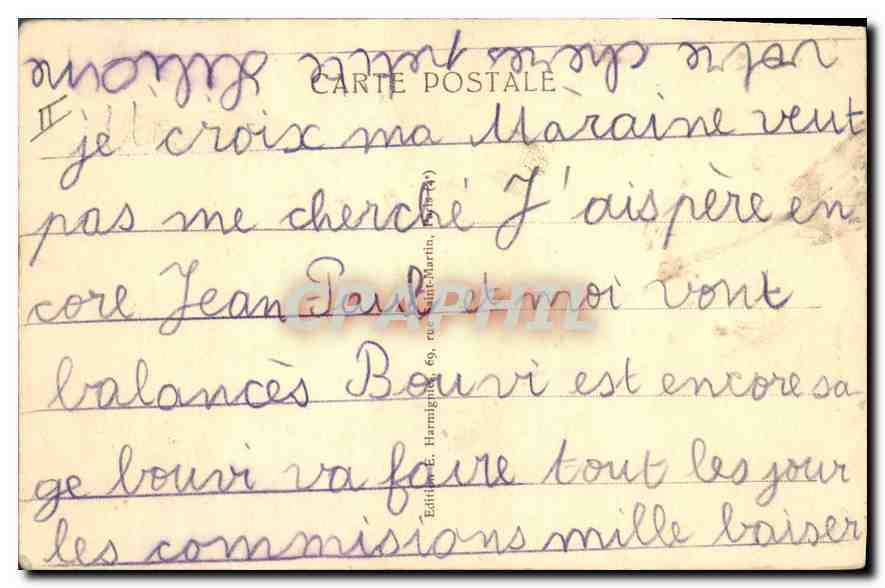 CARTE POSTALE
II
je croix ma Maraine veut
pas me cherché J'aispère en
core Jean Paul et moi vont
balancès Bouvi est encore sa
ge bouvi va faire tout les jour
les commisions mille baiser
votre chères petite Liliane
Edition E. Harmignies, 69, rue Saint-Martin, Paris (4e)
CPAPHIL